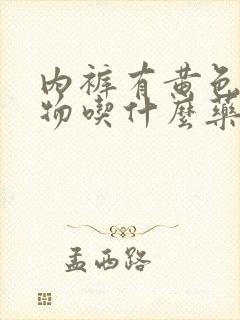 内裤有黄色
物喫什麼藥
孟西路